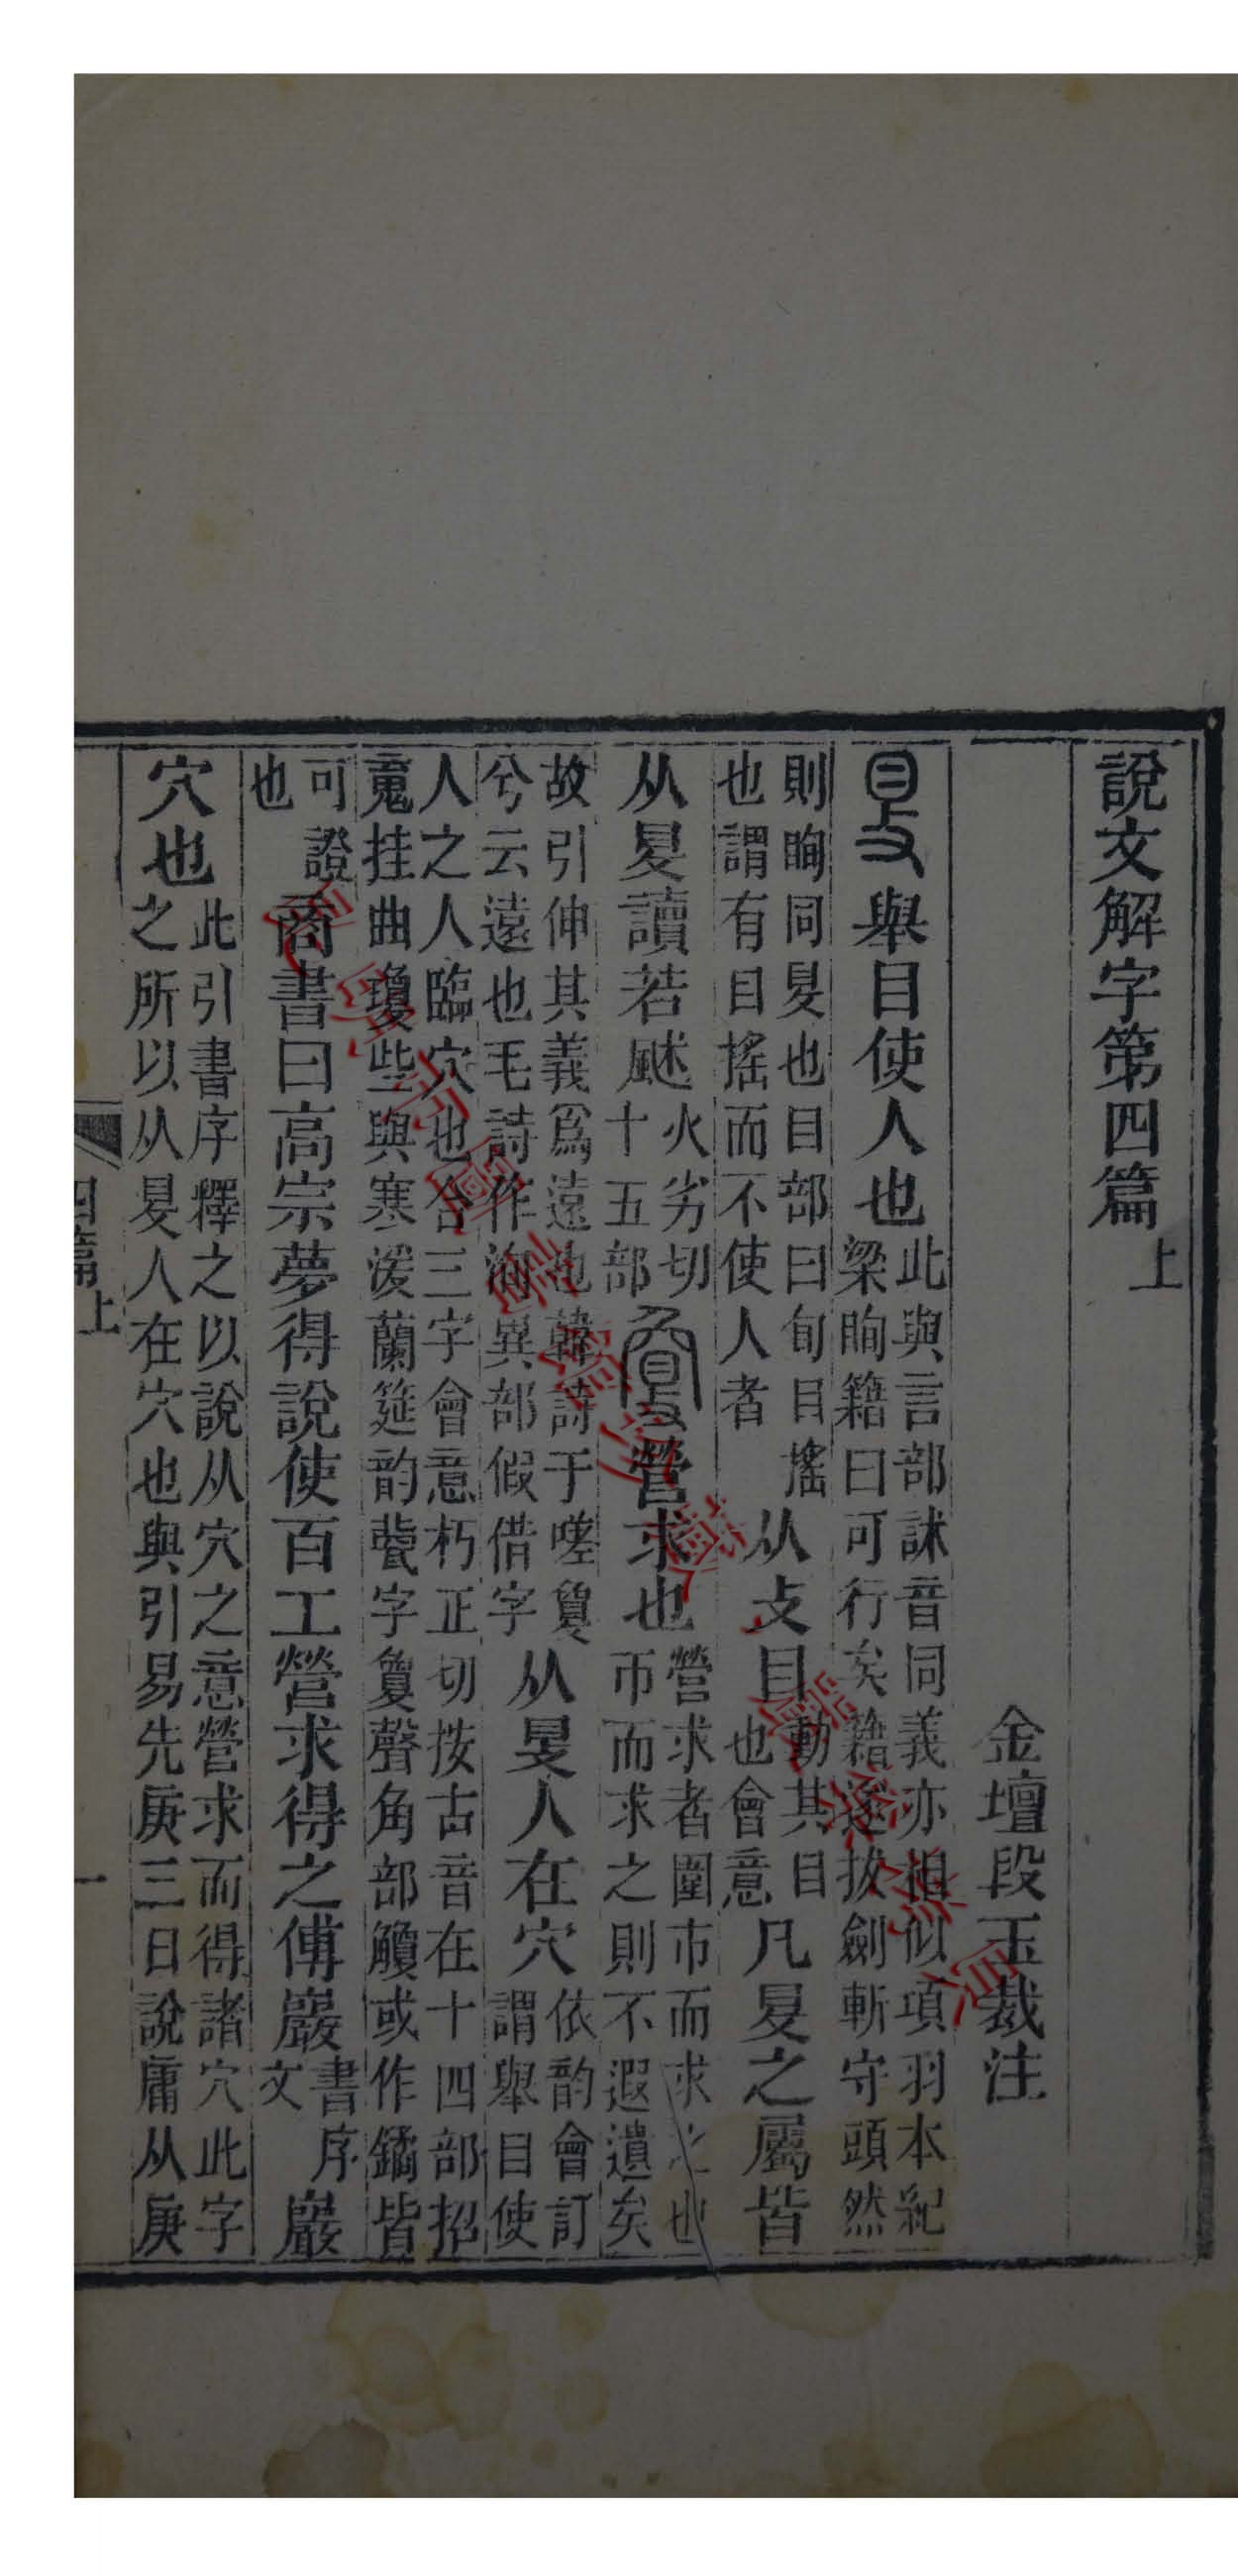 說文解字第四篇上
金壇段玉裁注
𥄎舉目使人也此與言部訹音同義亦相似項羽本紀
梁眴籍曰可行矣籍遂拔劍斬守頭然
則眴同𥄎也目部曰旬目搖
也謂有目搖而不使人者从攴目動其目
也會意凡𥄎之屬皆
从𥄎讀若颰火劣切
十五部夐營求也營求者圍帀而求之也
帀而求之則不遐遺矣
故引伸其義爲遠也韓詩于嗟夐
兮云遠也毛詩作洵異部假借字从𥄎人在穴依韵會訂
謂舉目使
人之人臨穴也合三字會意朽正切按古音在十四部招
䰟挂曲瓊些與寒湲蘭筵韵㼱字夐聲角部觼或作鐍皆
可證
也商書曰高宗夢得說使百工營求得之傅巖書序
文巖
穴也此引書序釋之以說从穴之意營求而得諸穴此字
之所以从𥄎人在穴也與引易先庚三日說庸从庚
四篇上
一